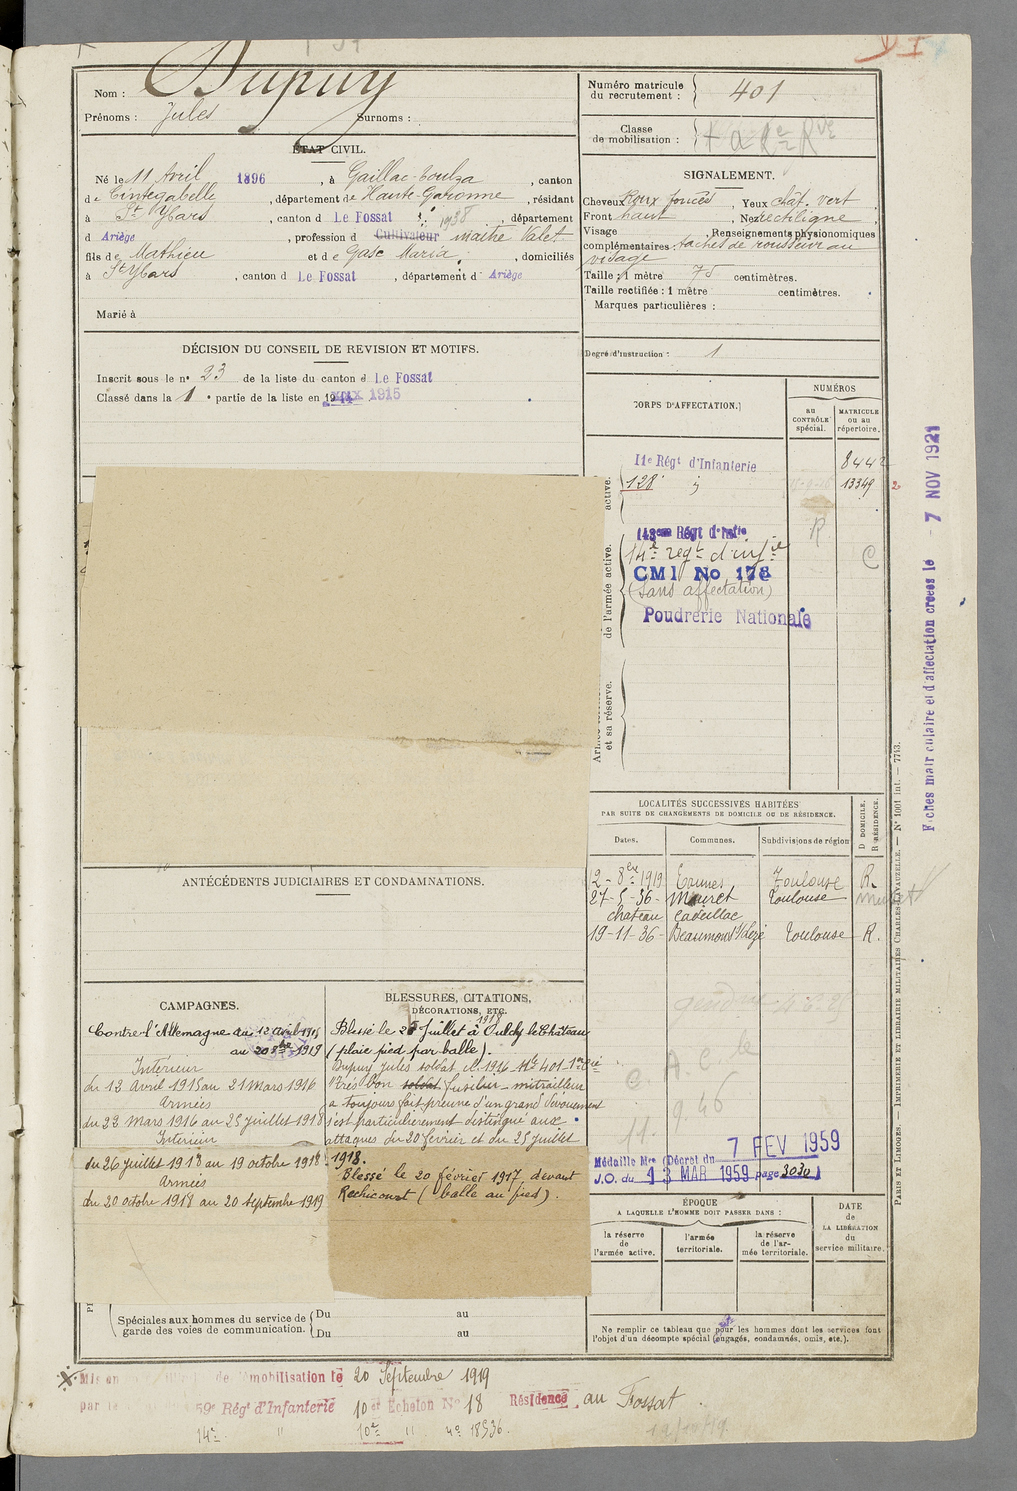 Nom : Dupuy
Prénoms : Jules Surnoms :
ÉTAT CIVIL.
Né le 11 Avril 1896, à Gaillac-Toulza, canton
de Cintegabelle, département de Haute-Garonne, résidant
à St Ybars, canton d Le Fossat 1938, département
d Ariège, profession d Cultivateur maitre Valet
fils de Mathieu et de Gasc Maria, domiciliés
à St Ybars, canton d Le Fossat, département d' Ariège
Marié à
DÉCISION DU CONSEIL DE REVISION ET MOTIFS.
Inscrit sous le n° 23 de la liste du canton d Le Fossat
Classé dans la 1 e partie de la liste en 1915
ANTÉCÉDENTS JUDICIAIRES ET CONDAMNATIONS.
CAMPAGNES.
Contre l'Allemagne du 12 avril 1915
au 20 8bre 1919
Intérieur
du 12 Avril 1915 au 21 Mars 1916
Armées
du 22 Mars 1916 au 25 Juillet 1918
Intérieur
du 26 juillet 1918 au 19 octobre 1918
Armées
du 20 octobre 1918 au 20 septembre 1919
BLESSURES, CITATIONS,
DÉCORATIONS, ETC.
Blessé le 25 Juillet 1918 à Oulchy le Château
(plaie pied par balle).
Dupuy Jules soldat cl. 1916 Mle 401 1re Cie
Très bon soldat fusilier-mitrailleur
a toujours fait preuve d'un grand dévouement
s'est particulièrement distingué aux
attaques du 20 février et du 25 juillet
1918.
Blessé le 20 février 1917 devant
Rechicourt (balle au pied).
Spéciales aux hommes du service de
garde des voies de communication.
Du au
Du au
Numéro matricule
du recrutement : 401
Classe
de mobilisation :
SIGNALEMENT.
Cheveux Roux foncés, Yeux chât. vert
Front haut, Nez rectiligne
Visage, Renseignements physionomiques
complémentaires taches de rousseur au
visage
Taille : 1 mètre 75 centimètres.
Taille rectifiée : 1 mètre centimètres.
Marques particulières :
Degré d'instruction : 1
CORPS D'AFFECTATION.
NUMÉROS
au
CONTRÔLE
spécial.
MATRICULE
ou au
répertoire.
active.
11e Régt d'Infanterie 8442
128 13349
de l'armée active.
Régt d'Infie
14e régt d'infie
CMI No 178
(Sans affectation)
Poudrerie Nationale
R
C
et sa réserve.
LOCALITÉS SUCCESSIVES HABITÉES
PAR SUITE DE CHANGEMENTS DE DOMICILE OU DE RÉSIDENCE.
Dates. Communes. Subdivisions de région
D DOMICILE.
R RÉSIDENCE.
12-8bre 1919 Eaunes Toulouse R.
27-5-36- Muret Toulouse
château Cadeillac
19-11-36- Beaumont s/Lèze Toulouse R.
11. 9. 46
Médaille Mre (Décret du 7 FEV 1959
J.O. du 13 MAR 1959 page 3030)
ÉPOQUE
A LAQUELLE L'HOMME DOIT PASSER DANS :
la réserve
de
l'armée active.
l'armée
territoriale.
la réserve
de l'ar-
mée territoriale.
DATE
de
LA LIBÉRATION
du
service militaire.
Ne remplir ce tableau que pour les hommes dont les services font
l'objet d'un décompte spécial (engagés, condamnés, omis, etc.).
Fiches matriculaire et d'affectation créées le 7 NOV 1921
PARIS ET LIMOGES. — IMPRIMERIE ET LIBRAIRIE MILITAIRES CHARLES-LAVAUZELLE. — N° 1001 int. — 7713.
Mis en de démobilisation le 20 Septembre 1919
par le 59e Régt d'Infanterie 10e Echelon No 18 Résidence au Fossat.
14e " 10e " 4e 18536.